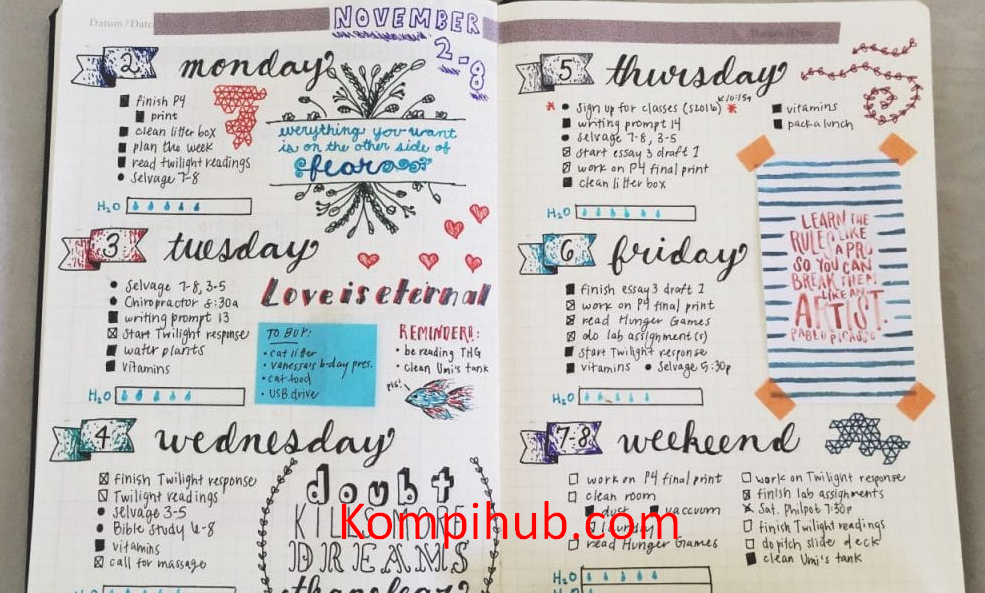 Datum / Date:
NOVEMBER
2-8
2 monday
finish P4
print
clean litter box
plan the week
read twilight readings
Selvage 7-8
H₂O
everything you want
is on the other side of
fear
3 tuesday
Selvage 7-8, 3-5
Chiropractor 8:30a
writing prompt 13
Start Twilight response
water plants
vitamins
H₂O
Love is eternal
TO BUY:
• cat litter
• vanessa's b-day pres.
• cat food
• USB drive
REMINDER!!:
• be reading THG
• clean Umi's tank
pls!
4 wednesday
finish Twilight response
Twilight readings
Selvage 3-5
Bible study 6-8
vitamins
call for massage
doubt
KILLS MORE
DREAMS
than
5 thursday
sign up for classes (S2016)
10:15a
writing prompt 14
selvage 7-8, 3-5
start essay 3 draft 1
work on P4 final print
clean litter box
vitamins
pack a lunch
H₂O
LEARN THE
RULES LIKE
A PRO
SO YOU CAN
BREAK THEM
LIKE AN
ARTIST.
PABLO PICASSO
6 friday
finish essay 3 draft 1
work on P4 final print
read Hunger Games
do lab assignment(s)
start Twilight response
vitamins • Selvage 5:30p
H₂O
7-8 weekend
work on P4 final print
clean room
dust vaccuum
laundry
read Hunger Games
work on Twilight response
finish lab assignments
Sat. Philpot 7:30p
finish Twilight readings
do pitch slide deck
clean Umi's tank
H₂O
Kompihub.com